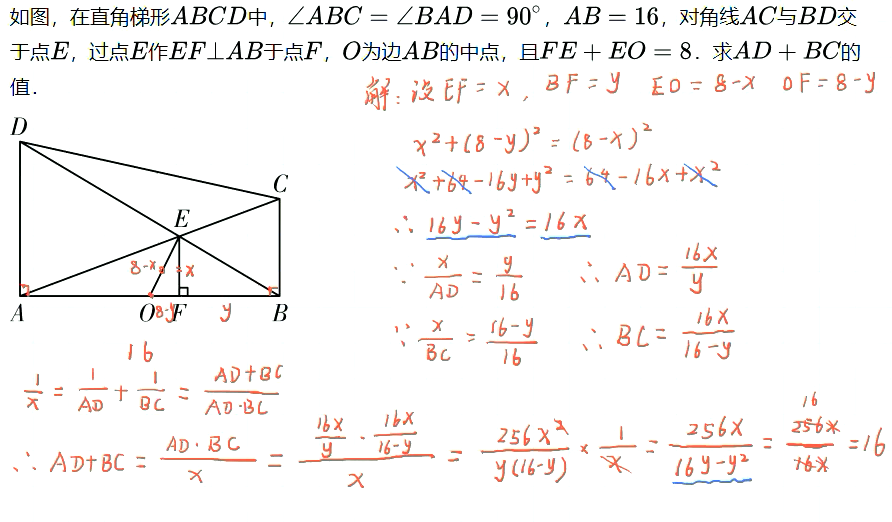 如图，在直角梯形ABCD中，∠ABC = ∠BAD = 90°，AB = 16，对角线AC与BD交
于点E，过点E作EF⊥AB于点F，O为边AB的中点，且FE + EO = 8．求AD + BC的
值．
解：设EF = x，BF = y EO = 8-x OF = 8-y
x²+(8-y)² = (8-x)²
x²+64-16y+y² = 64-16x+x²
∴ 16y-y² = 16x
∵ x/AD = y/16 ∴ AD = 16x/y
∵ x/BC = (16-y)/16 ∴ BC = 16x/(16-y)
D
C
E
8-x x
A O 8-y F y B
16
1/x = 1/AD + 1/BC = (AD+BC)/(AD·BC)
∴ AD+BC = (AD·BC)/x = (16x/y · 16x/(16-y))/x = 256x²/(y(16-y)) × 1/x = 256x/(16y-y²) = 256x/16x = 16
16